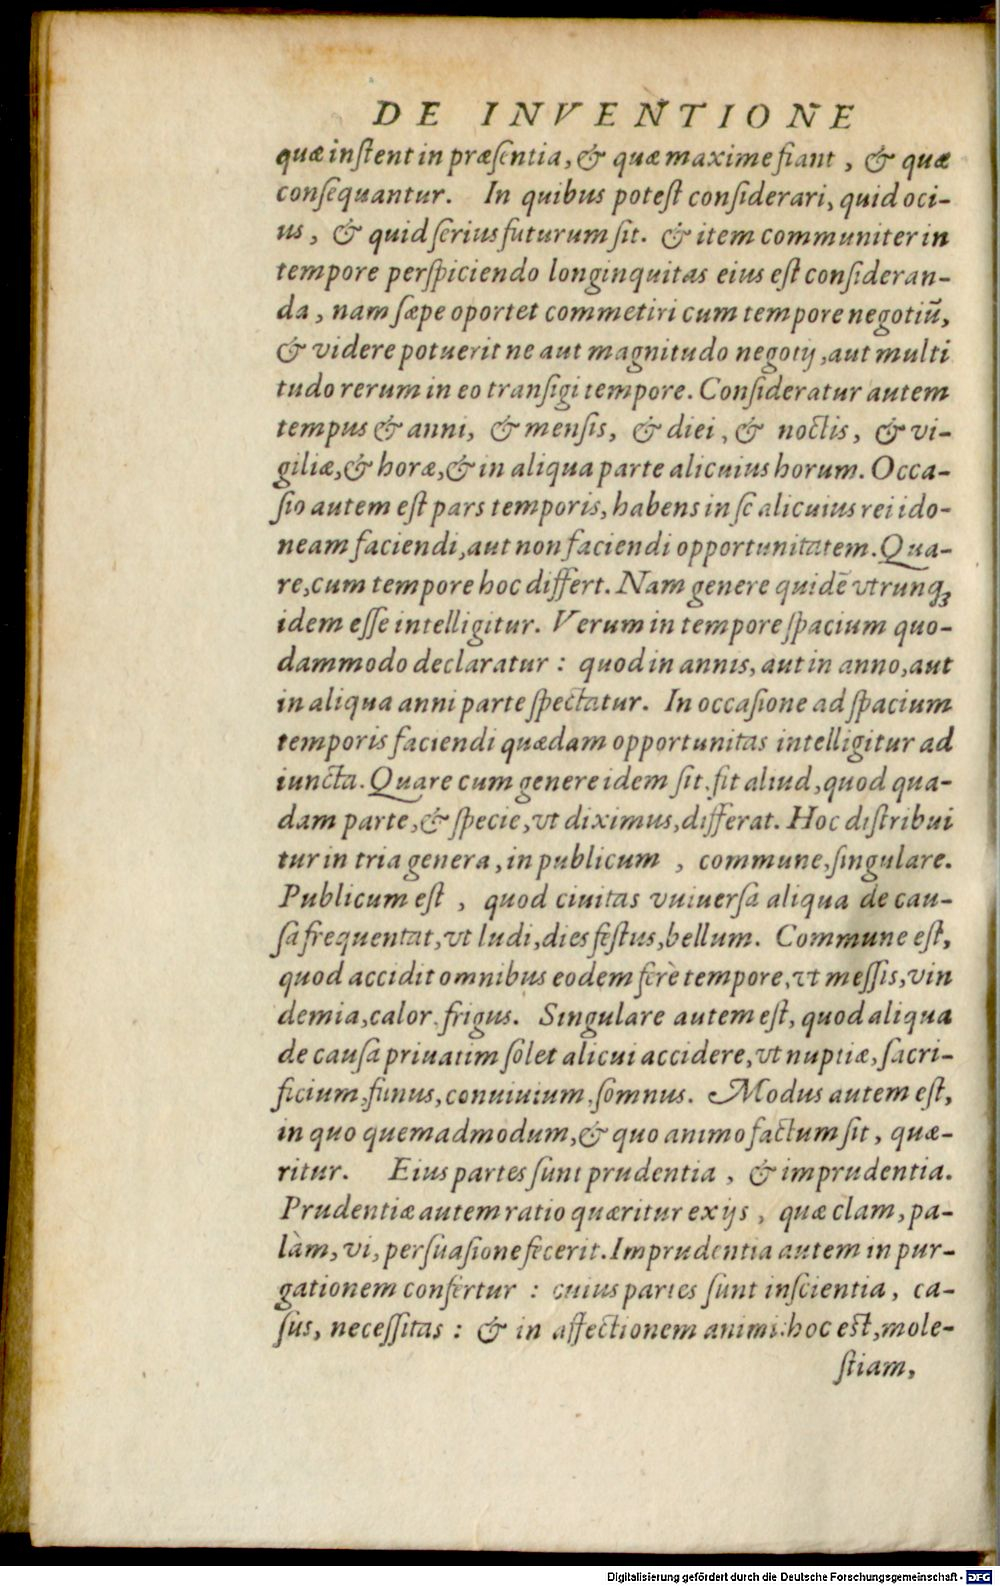 DE INVENTIONE
quæ instent in præsentia, & quæ maxime fiant , & quæ
consequantur. In quibus potest considerari, quid oci-
us , & quid serius futurum sit. & item communiter in
tempore perspiciendo longinquitas eius est consideran-
da , nam sæpe oportet commetiri cum tempore negotiū,
& videre potuerit ne aut magnitudo negotij ,aut multi
tudo rerum in eo transigi tempore. Consideratur autem
tempus & anni, & mensis, & diei , & noctis, & vi-
giliæ,& horæ,& in aliqua parte alicuius horum. Occa-
sio autem est pars temporis, habens in se alicuius rei ido-
neam faciendi,aut non faciendi opportunitatem. Qua-
re,cum tempore hoc differt. Nam genere quidē vtrunq;
idem esse intelligitur. Verum in tempore spacium quo-
dammodo declaratur : quod in annis, aut in anno,aut
in aliqua anni parte spectatur. In occasione ad spacium
temporis faciendi quædam opportunitas intelligitur ad
iuncta. Quare cum genere idem sit, fit aliud, quod qua-
dam parte,& specie,vt diximus,differat. Hoc distribui
tur in tria genera, in publicum , commune,singulare.
Publicum est , quod ciuitas vuiuersa aliqua de cau-
sa frequentat,vt ludi,dies festus,bellum. Commune est,
quod accidit omnibus eodem ferè tempore,vt messis,vin
demia,calor,frigus. Singulare autem est, quod aliqua
de causa priuatim solet alicui accidere,vt nuptiæ,sacri-
ficium,funus,conuiuium,somnus. Modus autem est,
in quo quemadmodum,& quo animo factum sit, quæ-
ritur. Eius partes sunt prudentia , & imprudentia.
Prudentiæ autem ratio quæritur ex ijs , quæ clam, pa-
làm, vi, persuasione fecerit. Imprudentia autem in pur-
gationem confertur : cuius partes sunt inscientia, ca-
sus, necessitas : & in affectionem animi:hoc est,mole-
stiam,
Digitalisierung gefördert durch die Deutsche Forschungsgemeinschaft - DFG